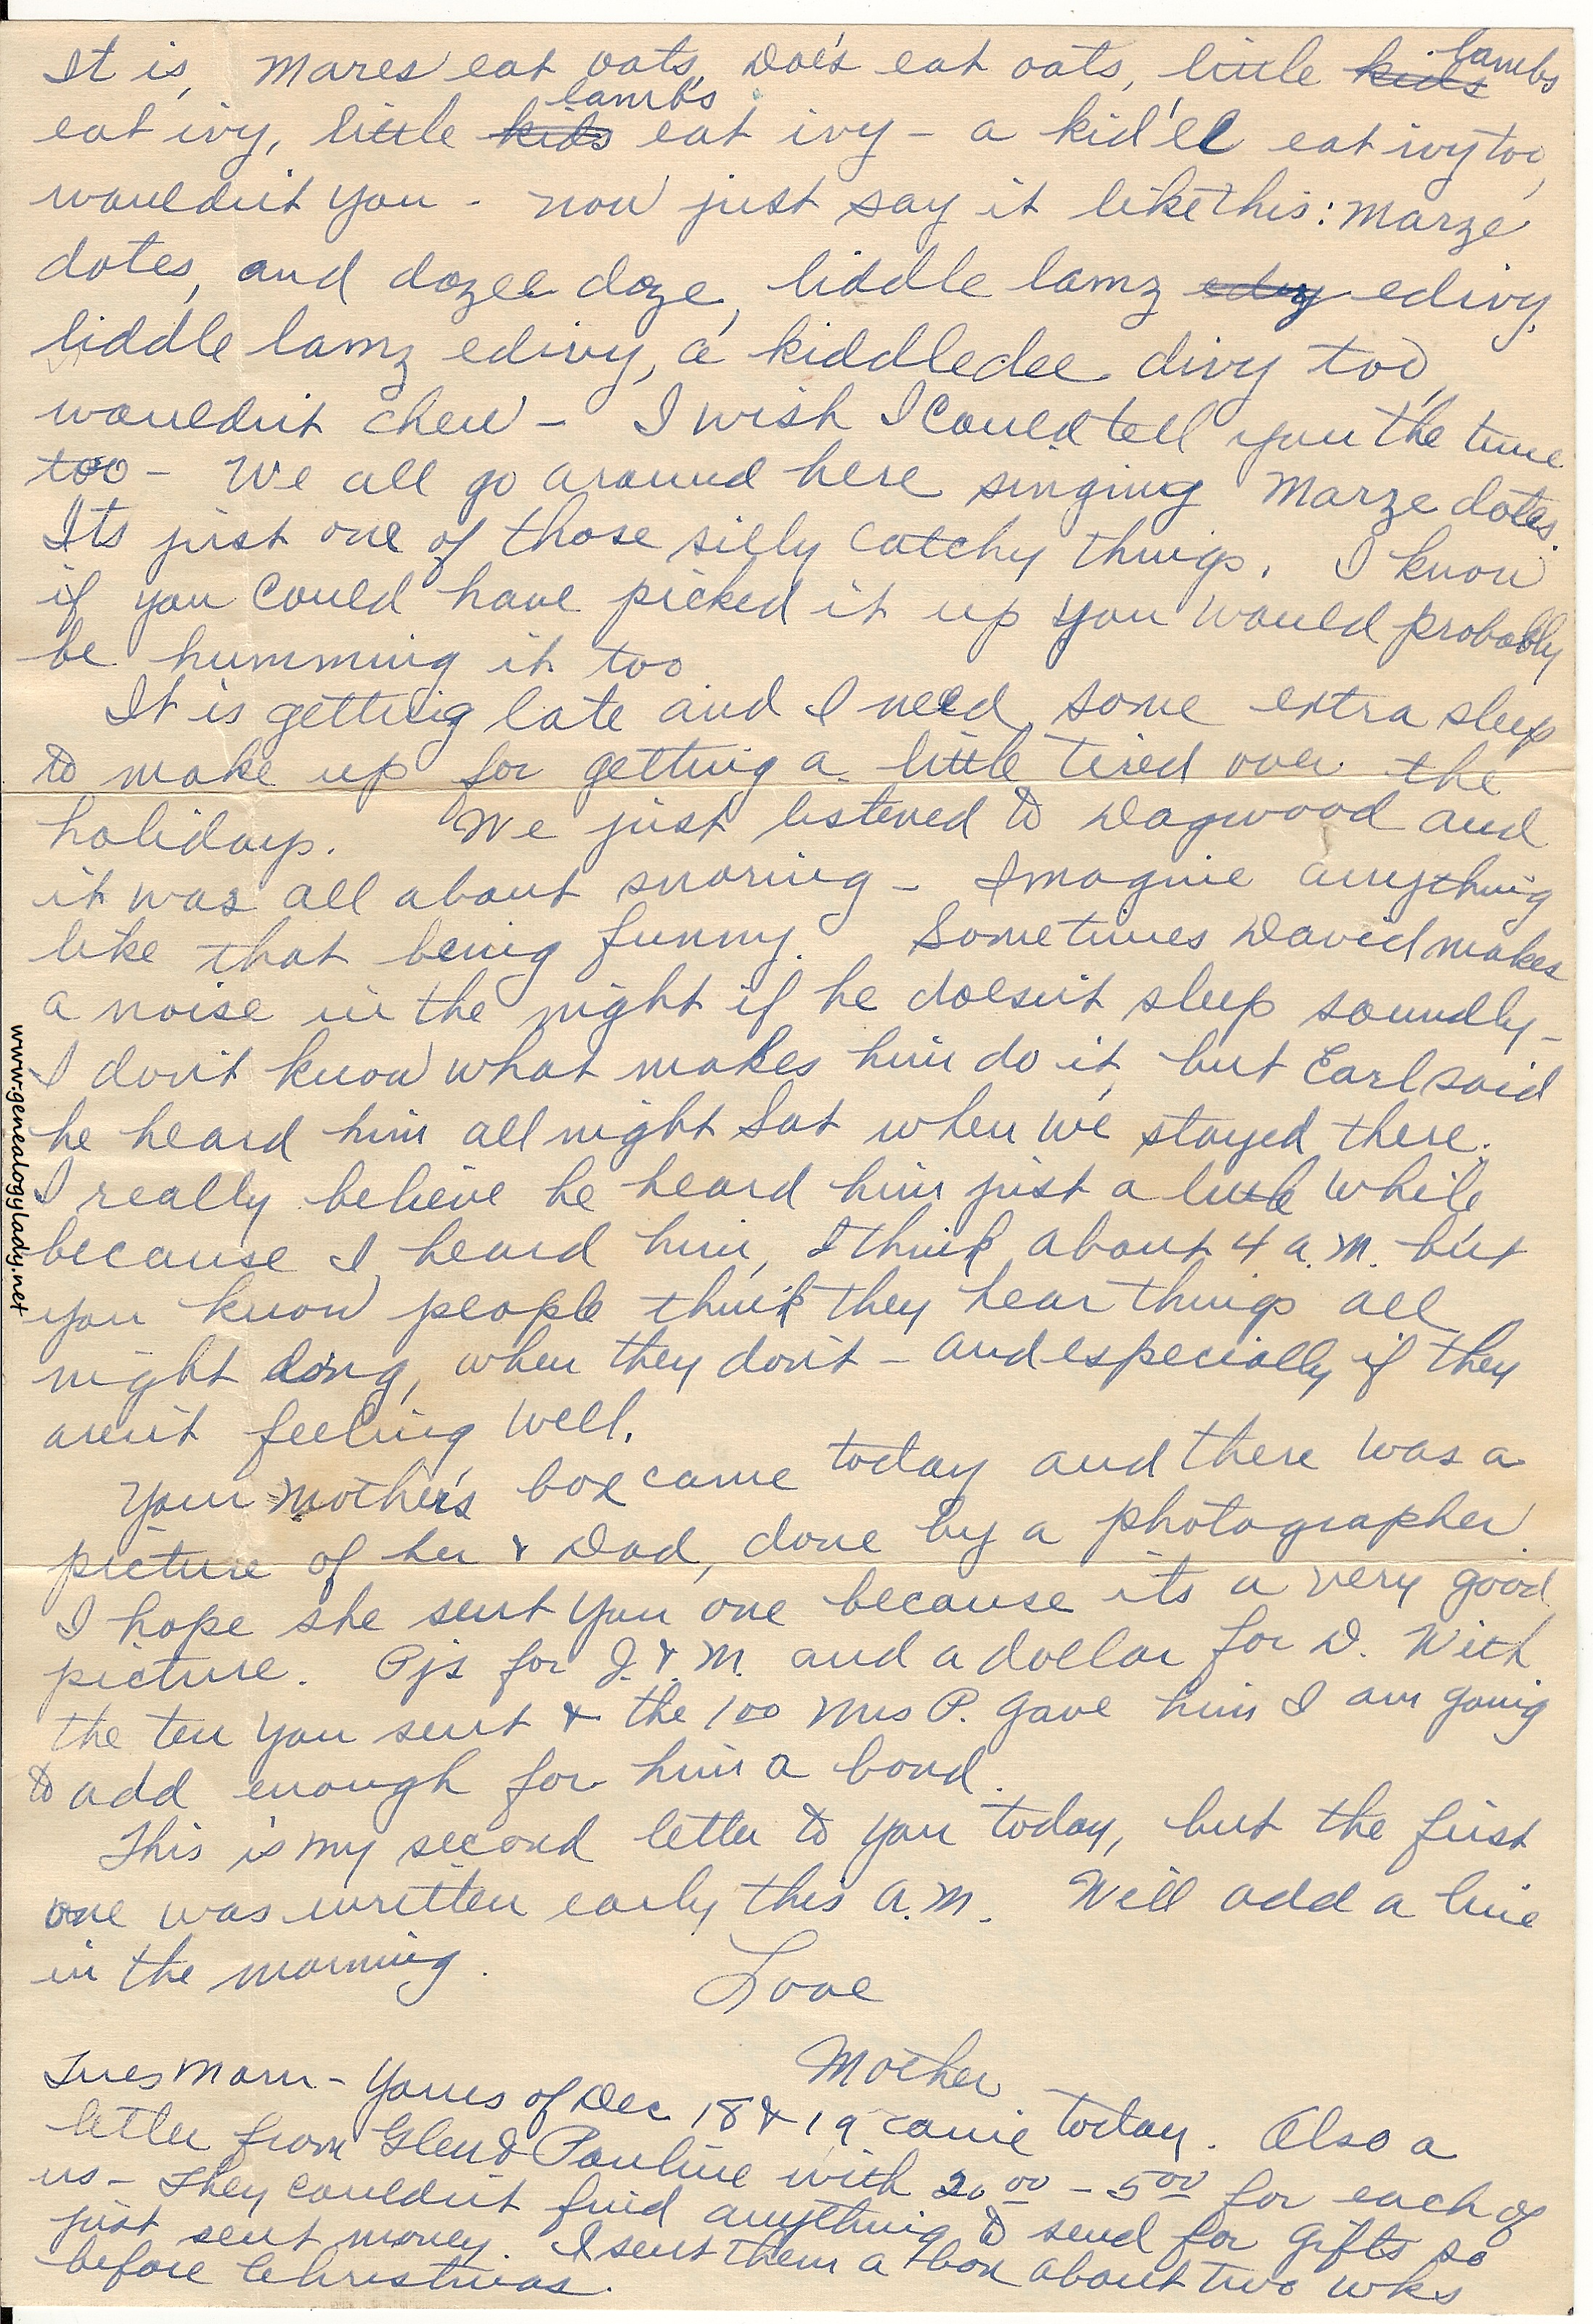 It is, Mares eat oats, Doe's eat oats, little kids lambs
eat ivy, little kids lambs eat ivy – a kid'll eat ivy too,
wouldn't you – now just say it like this: Marze
dotes, and dozee doze, liddle lamz edivy edivy,
liddle lamz edivy, a kiddledee divy too,
wouldn't chew – I wish I could tell you the tune
too – We all go around here singing Marze dotes.
Its just one of those silly catchy things. I know
if you could have picked it up you would probably
be humming it too
It is getting late and I need some extra sleep
to make up for getting a little tired over the
holidays. We just listened to Dagwood and
it was all about snoring – Imagine anything
like that being funny. Sometimes David makes
a noise in the night if he doesn't sleep soundly –
I don't know what makes him do it, but Earl said
he heard him all night Sat when we stayed there.
I really believe he heard him just a little while
because I heard him, I think about 4 a.m. but
you know people think they hear things all
night long, when they don't – and especially if they
aren't feeling well.
Your Mother's box came today and there was a
picture of her & Dad, done by a photographer.
I hope she sent you one because its a very good
picture. Pjs for J. & M. and a dollar for D. With
the ten you sent & the 1 00 Mrs P. gave him I am going
to add enough for him a bond.
This is my second letter to you today, but the first
one was written early this a.m. Will add a line
in the morning.
Love
Mother
Tues Morn – Yours of Dec 18 & 19 came today. Also a
letter from Glen & Pauline with 20 00 – 5 00 for each of
us – They couldn't find anything to send for gifts so
just sent money. I sent them a box about two wks
before Christmas.
www.genealogylady.net